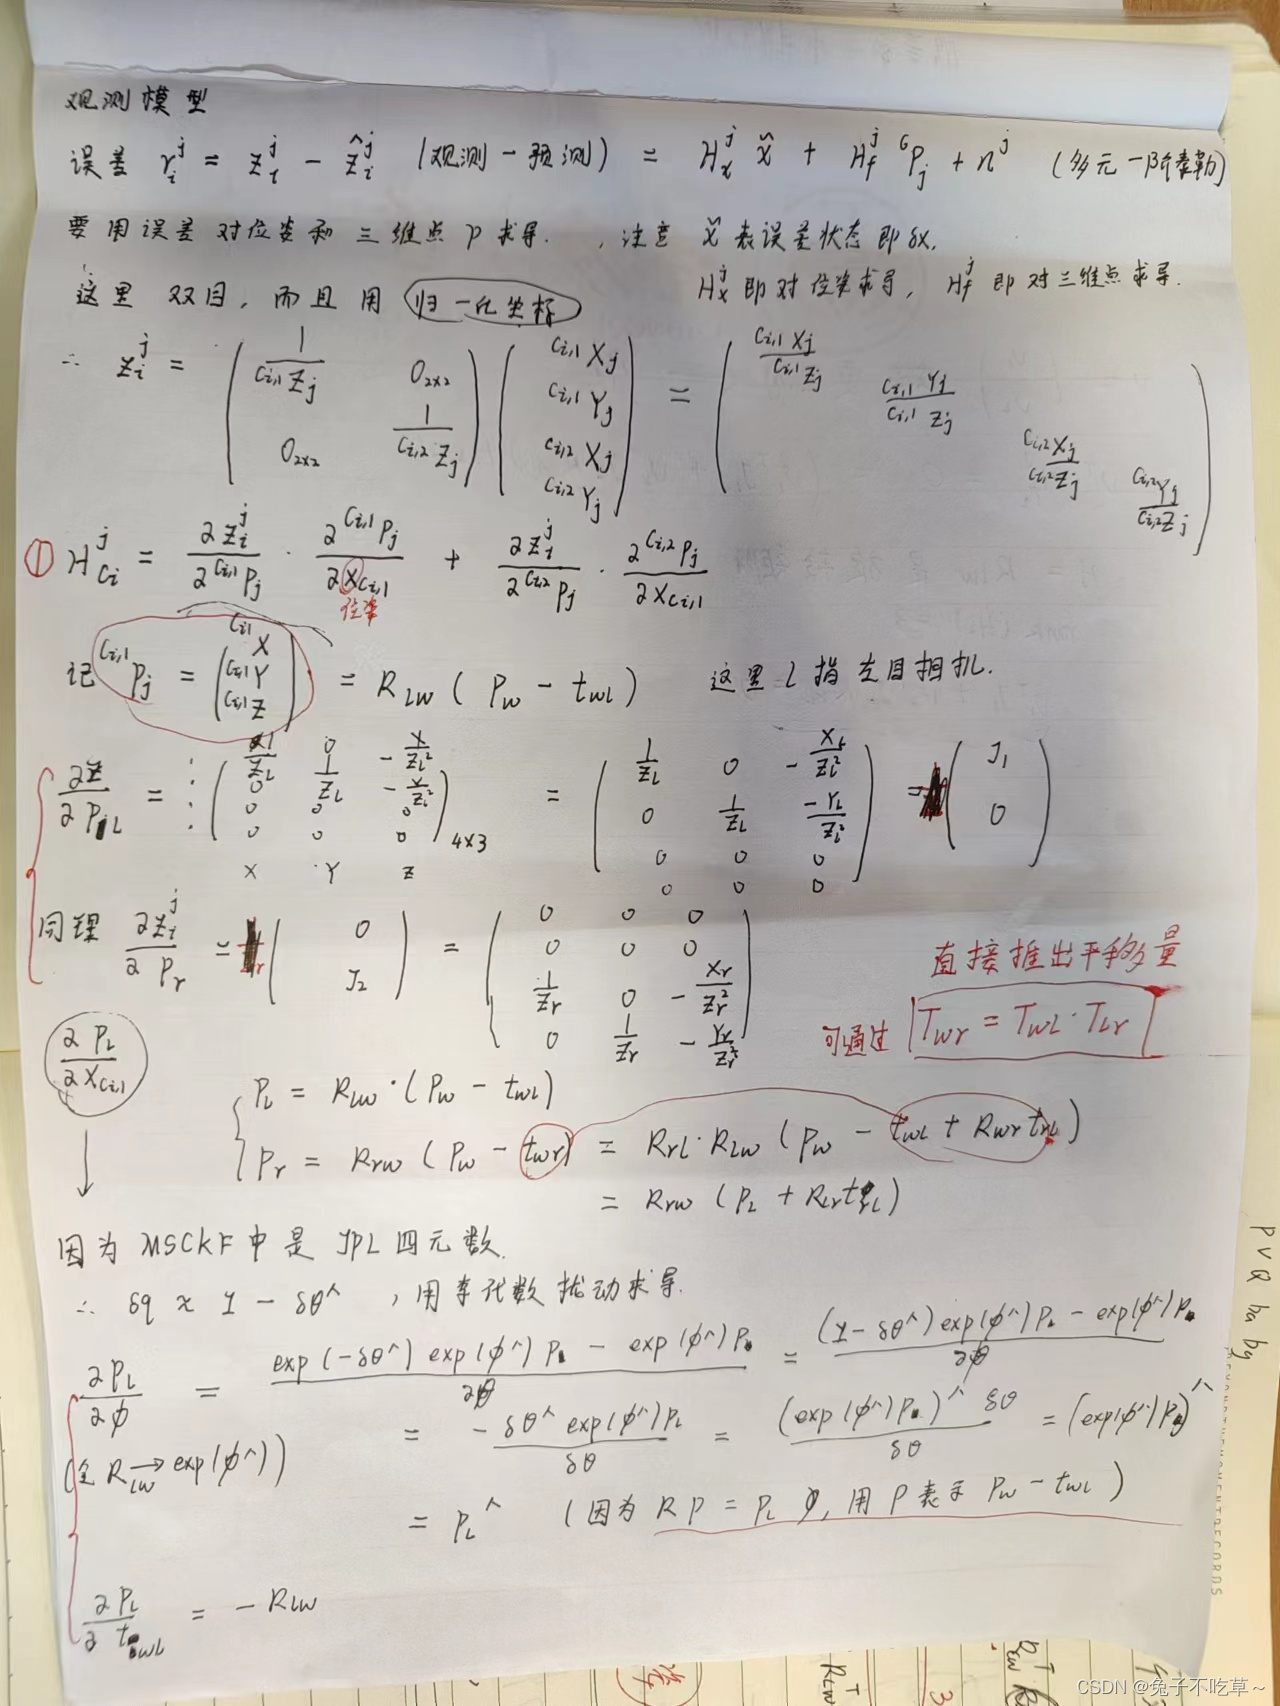 观测模型
误差 r_i^j = z_i^j - ẑ_i^j (观测-预测) = H_x^j x̃ + H_f^j ^G P_j + n^j (多元一阶泰勒)
要用误差对位姿和三维点P求导. , 注意 x̃ 表误差状态即δx.
H_x^j 即对位姿求导, H_f^j 即对三维点求导.
这里 双目, 而且用 归一化坐标
∴ z_i^j = ( 1/^{Ci,1}Z_j 0_{2x2} ; 0_{2x2} 1/^{Ci,2}Z_j ) ( ^{Ci,1}X_j ; ^{Ci,1}Y_j ; ^{Ci,2}X_j ; ^{Ci,2}Y_j ) = ( ^{Ci,1}X_j/^{Ci,1}Z_j ^{Ci,1}Y_j/^{Ci,1}Z_j ^{Ci,2}X_j/^{Ci,2}Z_j ^{Ci,2}Y_j/^{Ci,2}Z_j )
① H_{Ci}^j = ∂z_i^j/∂^{Ci,1}P_j · ∂^{Ci,1}P_j/∂X_{Ci,1} + ∂z_i^j/∂^{Ci,2}P_j · ∂^{Ci,2}P_j/∂X_{Ci,1}
位姿
记 ^{Ci,1}P_j = ( ^{Ci,1}X ; ^{Ci,1}Y ; ^{Ci,1}Z ) = R_{LW} ( P_W - t_{WL} ) 这里 L 指左目相机.
∂Z/∂P_{jL} = ( 1/Z_L 0 -X/Z_L² ; 0 1/Z_L -Y/Z_L² ; 0 0 0 ; 0 0 0 )_{4x3} = ( 1/Z_L 0 -X_L/Z_L² ; 0 1/Z_L -Y_L/Z_L² ; 0 0 0 ; 0 0 0 ) = ( J_1 ; 0 )
X Y Z
同理 ∂z_i^j/∂P_r = ( 0 ; J_2 ) = ( 0 0 0 ; 0 0 0 ; 1/Z_r 0 -X_r/Z_r² ; 0 1/Z_r -Y_r/Z_r² )
直接推出平移量
可通过 T_{wr} = T_{wL} · T_{Lr}
∂P_L/∂X_{Ci,1}
P_L = R_{LW} · (P_W - t_{WL})
P_r = R_{rW} (P_W - t_{wr}) = R_{rL} · R_{LW} (P_W - t_{WL} + R_{Wr} t_{rL})
= R_{rW} (P_L + R_{Lr} t_{rL})
因为 MSCKF 中是 JPL 四元数.
∴ δq ≈ I - δθ^ , 用李代数扰动求导.
∂P_L/∂φ = exp(-δθ^) exp(φ^) P - exp(φ^) P / ∂θ = (I - δθ^) exp(φ^) P - exp(φ^) P / ∂θ
(令 R_{LW} → exp(φ^))
= -δθ^ exp(φ^) P_L / δθ = (exp(φ^) P)^ δθ / δθ = (exp(φ^) P)^
= P_L^ (因为 RP = P_L , 用 P 表示 P_W - t_{WL})
∂P_L/∂t_{WL} = - R_{LW}
P V Q ba bg
CSDN @兔子不吃草~